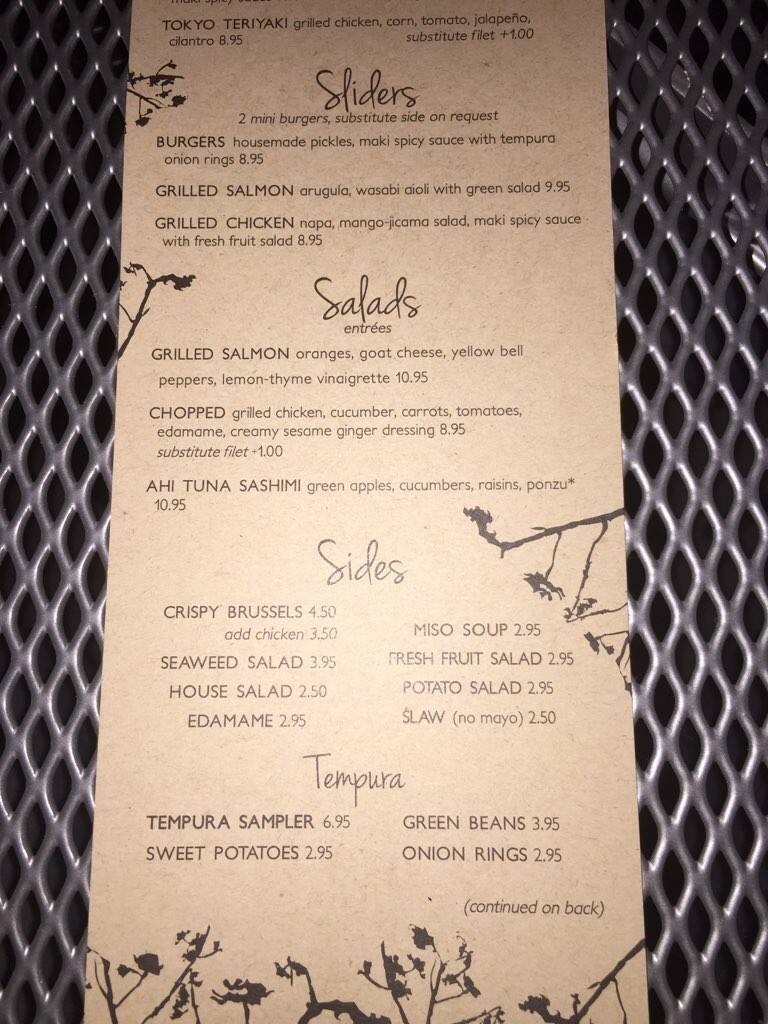 maki spicy sauce
TOKYO TERIYAKI grilled chicken, corn, tomato, jalapeño,
cilantro 8.95 substitute filet +1.00
Sliders
2 mini burgers, substitute side on request
BURGERS housemade pickles, maki spicy sauce with tempura
onion rings 8.95
GRILLED SALMON arugula, wasabi aioli with green salad 9.95
GRILLED CHICKEN napa, mango-jicama salad, maki spicy sauce
with fresh fruit salad 8.95
Salads
entrées
GRILLED SALMON oranges, goat cheese, yellow bell
peppers, lemon-thyme vinaigrette 10.95
CHOPPED grilled chicken, cucumber, carrots, tomatoes,
edamame, creamy sesame ginger dressing 8.95
substitute filet +1.00
AHI TUNA SASHIMI green apples, cucumbers, raisins, ponzu*
10.95
Sides
CRISPY BRUSSELS 4.50
add chicken 3.50
SEAWEED SALAD 3.95
HOUSE SALAD 2.50
EDAMAME 2.95
MISO SOUP 2.95
FRESH FRUIT SALAD 2.95
POTATO SALAD 2.95
SLAW (no mayo) 2.50
Tempura
TEMPURA SAMPLER 6.95
SWEET POTATOES 2.95
GREEN BEANS 3.95
ONION RINGS 2.95
(continued on back)